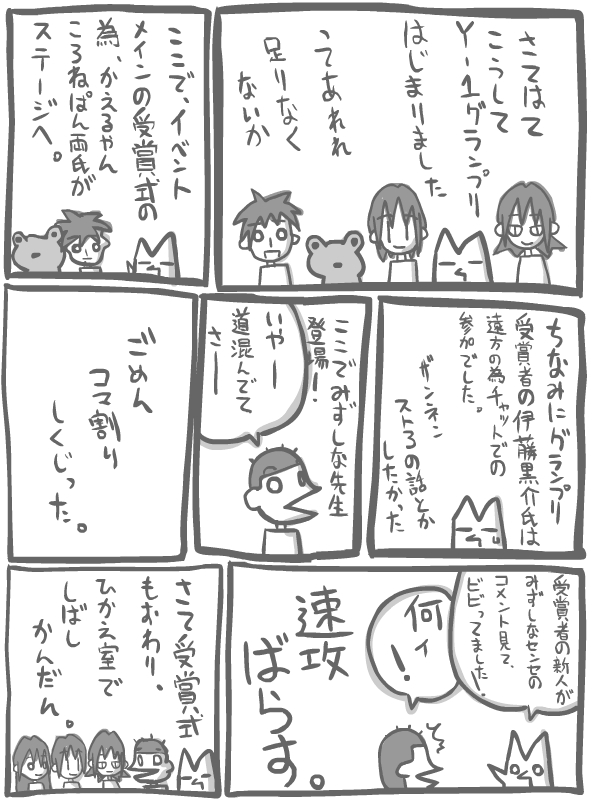 さてはて
こうして
Y-1グランプリ
はじまりました
ってあれれ
足りなく
ないか
ここで、イベント
メインの受賞式の
為、かえるやん
ころねぱん両氏が
ステージへ。
ちなみにグランプリ
受賞者の伊藤黒介氏は
遠方の為チャットでの
参加でした。
ザンネン
ストろの話とか
したかった
ここでみずしな先生
登場！
いやー
道混んでて
さー
ごめん
コマ割り
しくじった。
受賞者の新人が
みずしなセンセの
コメント見て、
ビビってました！
何ィ！
速攻
ばらす。
さて受賞式
もおわり、
ひかえ室で
しばし
かんだん。